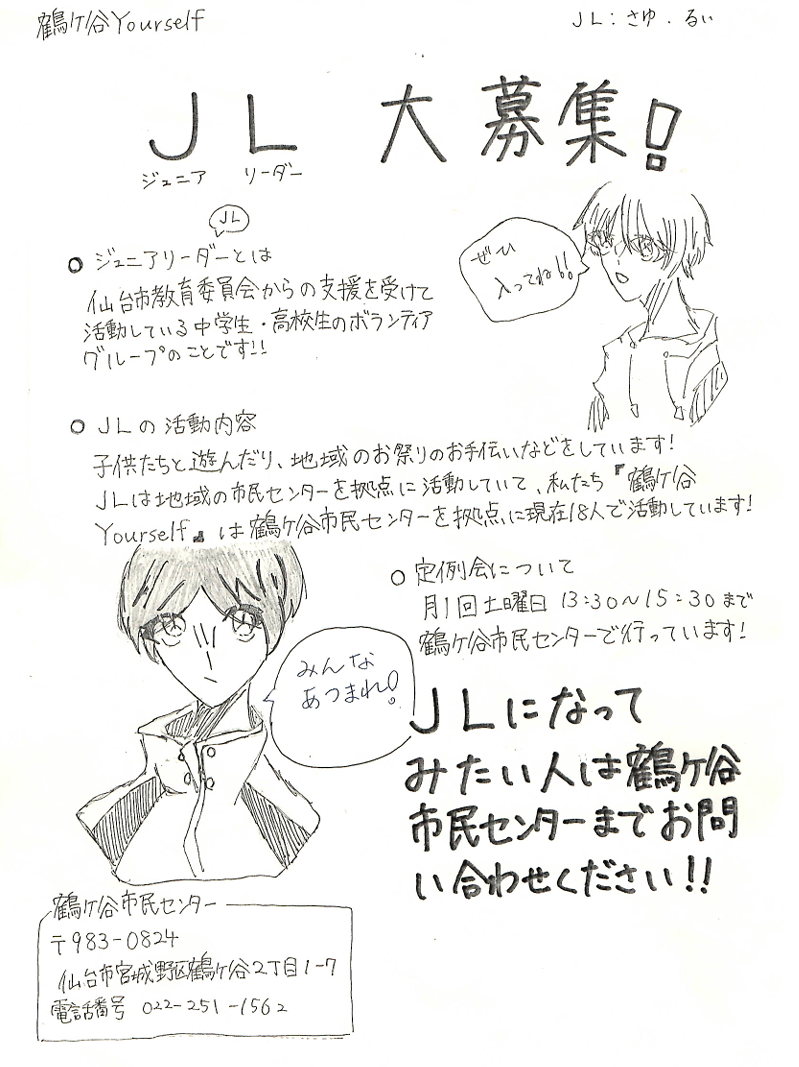 鶴ケ谷Yourself
JL：さゆ．るい
JL 大募集!
ジュニア リーダー
JL
○ ジュニアリーダーとは
仙台市教育委員会からの支援を受けて
活動している中学生・高校生のボランティア
グループのことです!!
ぜひ
入ってね!!
○ JLの活動内容
子供たちと遊んだり、地域のお祭りのお手伝いなどをしています!
JLは地域の市民センターを拠点に活動していて、私たち『鶴ケ谷
Yourself』は鶴ケ谷市民センターを拠点に現在18人で活動しています!
○ 定例会について
月1回土曜日 13:30～15:30まで
鶴ケ谷市民センターで行っています!
みんな
あつまれ!
JLになって
みたい人は鶴ケ谷
市民センターまでお問
い合わせください!!
鶴ケ谷市民センター
〒983-0824
仙台市宮城野区鶴ケ谷2丁目1-7
電話番号 022-251-1562